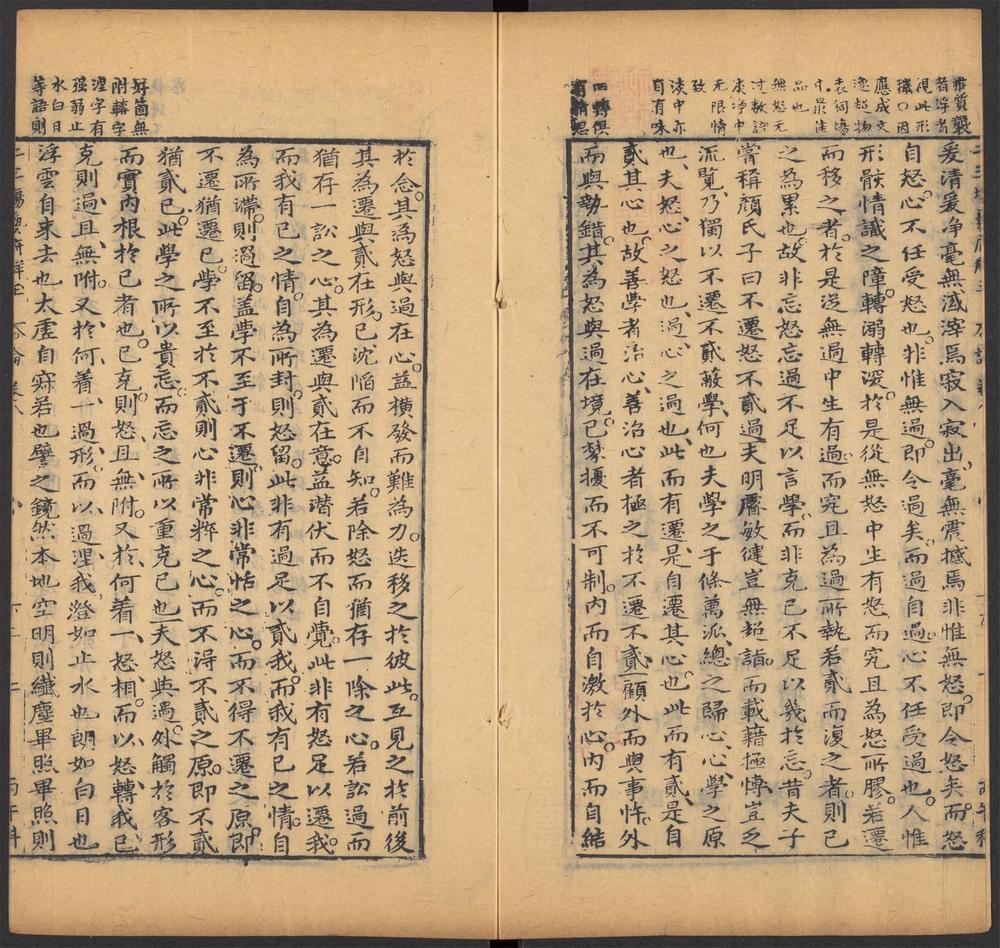 雅質襲
者浮者
視此形
穢因
應成文
逸超物
表詞場
中最佳
品也
無怒无
过數語
淡净中
无限情
致
淡中亦
自有味
四轉俱
爰清爰净毫無滅滓焉寂入寂出毫無震撼焉非惟無怒即令怒矣而怒
自怒心不任受怒也非惟無過即令過矣而過自過心不任受過也人惟
形骸情識之障轉溺轉深於是從無怒中生有怒而究且為怒所膠若遷
而移之者於是從無過中生有過而究且為過所執若貳而復之者則已
之為累也故非忘怒忘過不足以言學而非克已不足以幾於忘昔夫子
嘗稱顏氏子曰不遷怒不貳過夫明膚敏健豈無超詣而載籍極博豈乏
流覽乃獨以不遷不貳蔽學何也夫學之于條萬派總之歸心心學之原
也夫怒心之怒也過心之過也此而有遷是自遷其心也此而有貳是自
貳其心也故善學者治心善治心者極之於不遷不貳顧外而與事忤外
而與動錯其為怒與過在境已棼擾而不可制內而自激於心內而自結
好箇無
附轉字
涅字有
强弱止
水白日
等語則
於念其為怒與過在心益橫發而難為力迭移之於彼此互見之於前後
其為遷與貳在形已沈陷而不自知若除怒而猶存一除之心若訟過而
猶存一訟之心其為遷與貳在意益潛伏而不自覺此非有怒足以遷我
而我有已之情自為所封則怒留此非有過足以貳我而我有已之情自
為所滯則過留盖學不至于不遷則心非常恬之心而不得不遷之原即
不遷猶遷已學不至於不貳則心非常粹之心而不得不貳之原即不貳
猶貳已此學之所以貴忘而忘之所以重克已也夫怒與過外觸於客形
而實內根於已者也已克則怒且無附又於何着一怒相而以怒轉我已
克則過且無附又於何着一過形而以過涅我澄如止水也朗如白日也
浮雲自來去也太虛自寂若也譬之鏡然本地空明則纖塵畢照畢照則